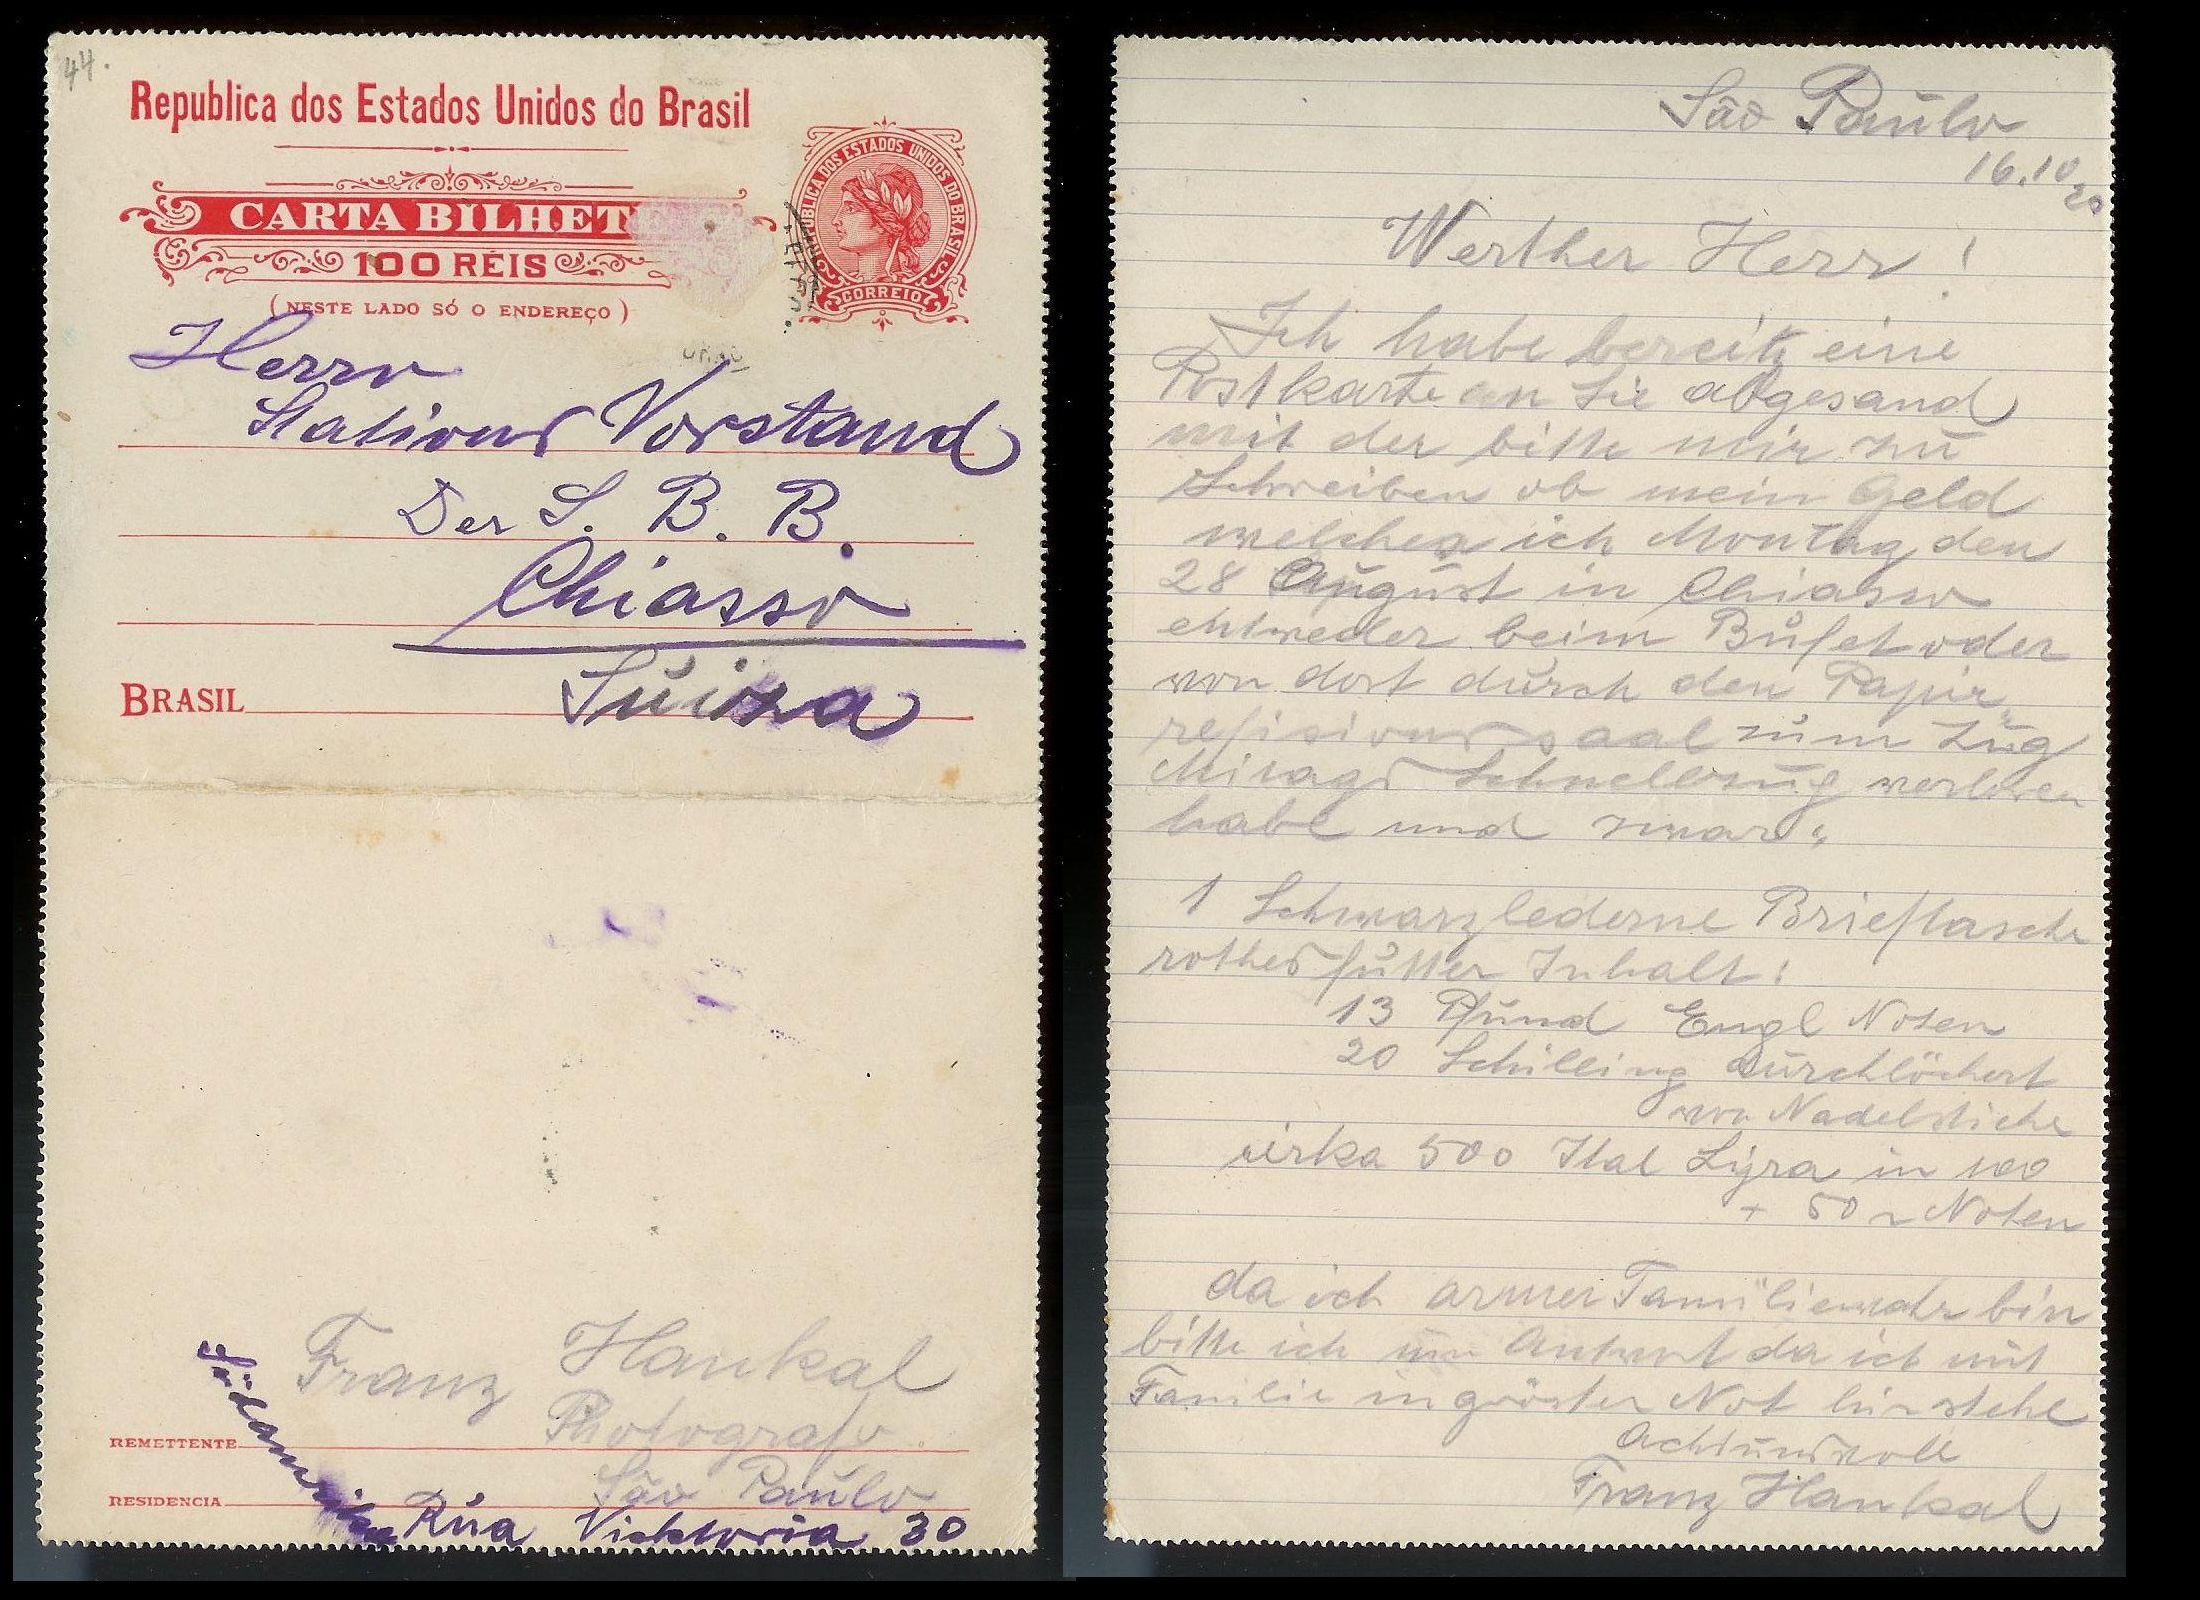 44.
Republica dos Estados Unidos do Brasil
CARTA BILHET
100 RÉIS
(NESTE LADO SÓ O ENDEREÇO)
REPUBLICA DOS ESTADOS UNIDOS DO BRASIL
CORREIO
Herrn
Stations Vorstand
Der S. B. B.
Chiasso
Suizza
BRASIL
Franz Hankal
Photografo
REMETTENTE
São Paulo
RESIDENCIA
Südamerika Rua Vicktoria 30
São Paulo
16.10
20
Werther Herr!
Ich habe bereits eine
Postkarte an Sie abgesand
mit der bitte mir zu
Schreiben ob mein Geld
welches ich Montag den
28 August in Chiasso
entweder beim Büfet oder
von dort durch den Papir
refisionssaal zum Zug
Mitags Schnellzug verloren
habe und zwar:
1 Schwarzlederne Brieftasche
rothes futter Inhalt:
13 Pfund Engl Noten
20 Schilling durchlöchert
von Nadelstiche
zirka 500 Ital Lyra in 100
+ 50 Noten
da ich armer Familienvater bin
bitte ich um Antwort da ich mit
Familie in gröster Not hir stehe
Achtungsvoll
Franz Hankal